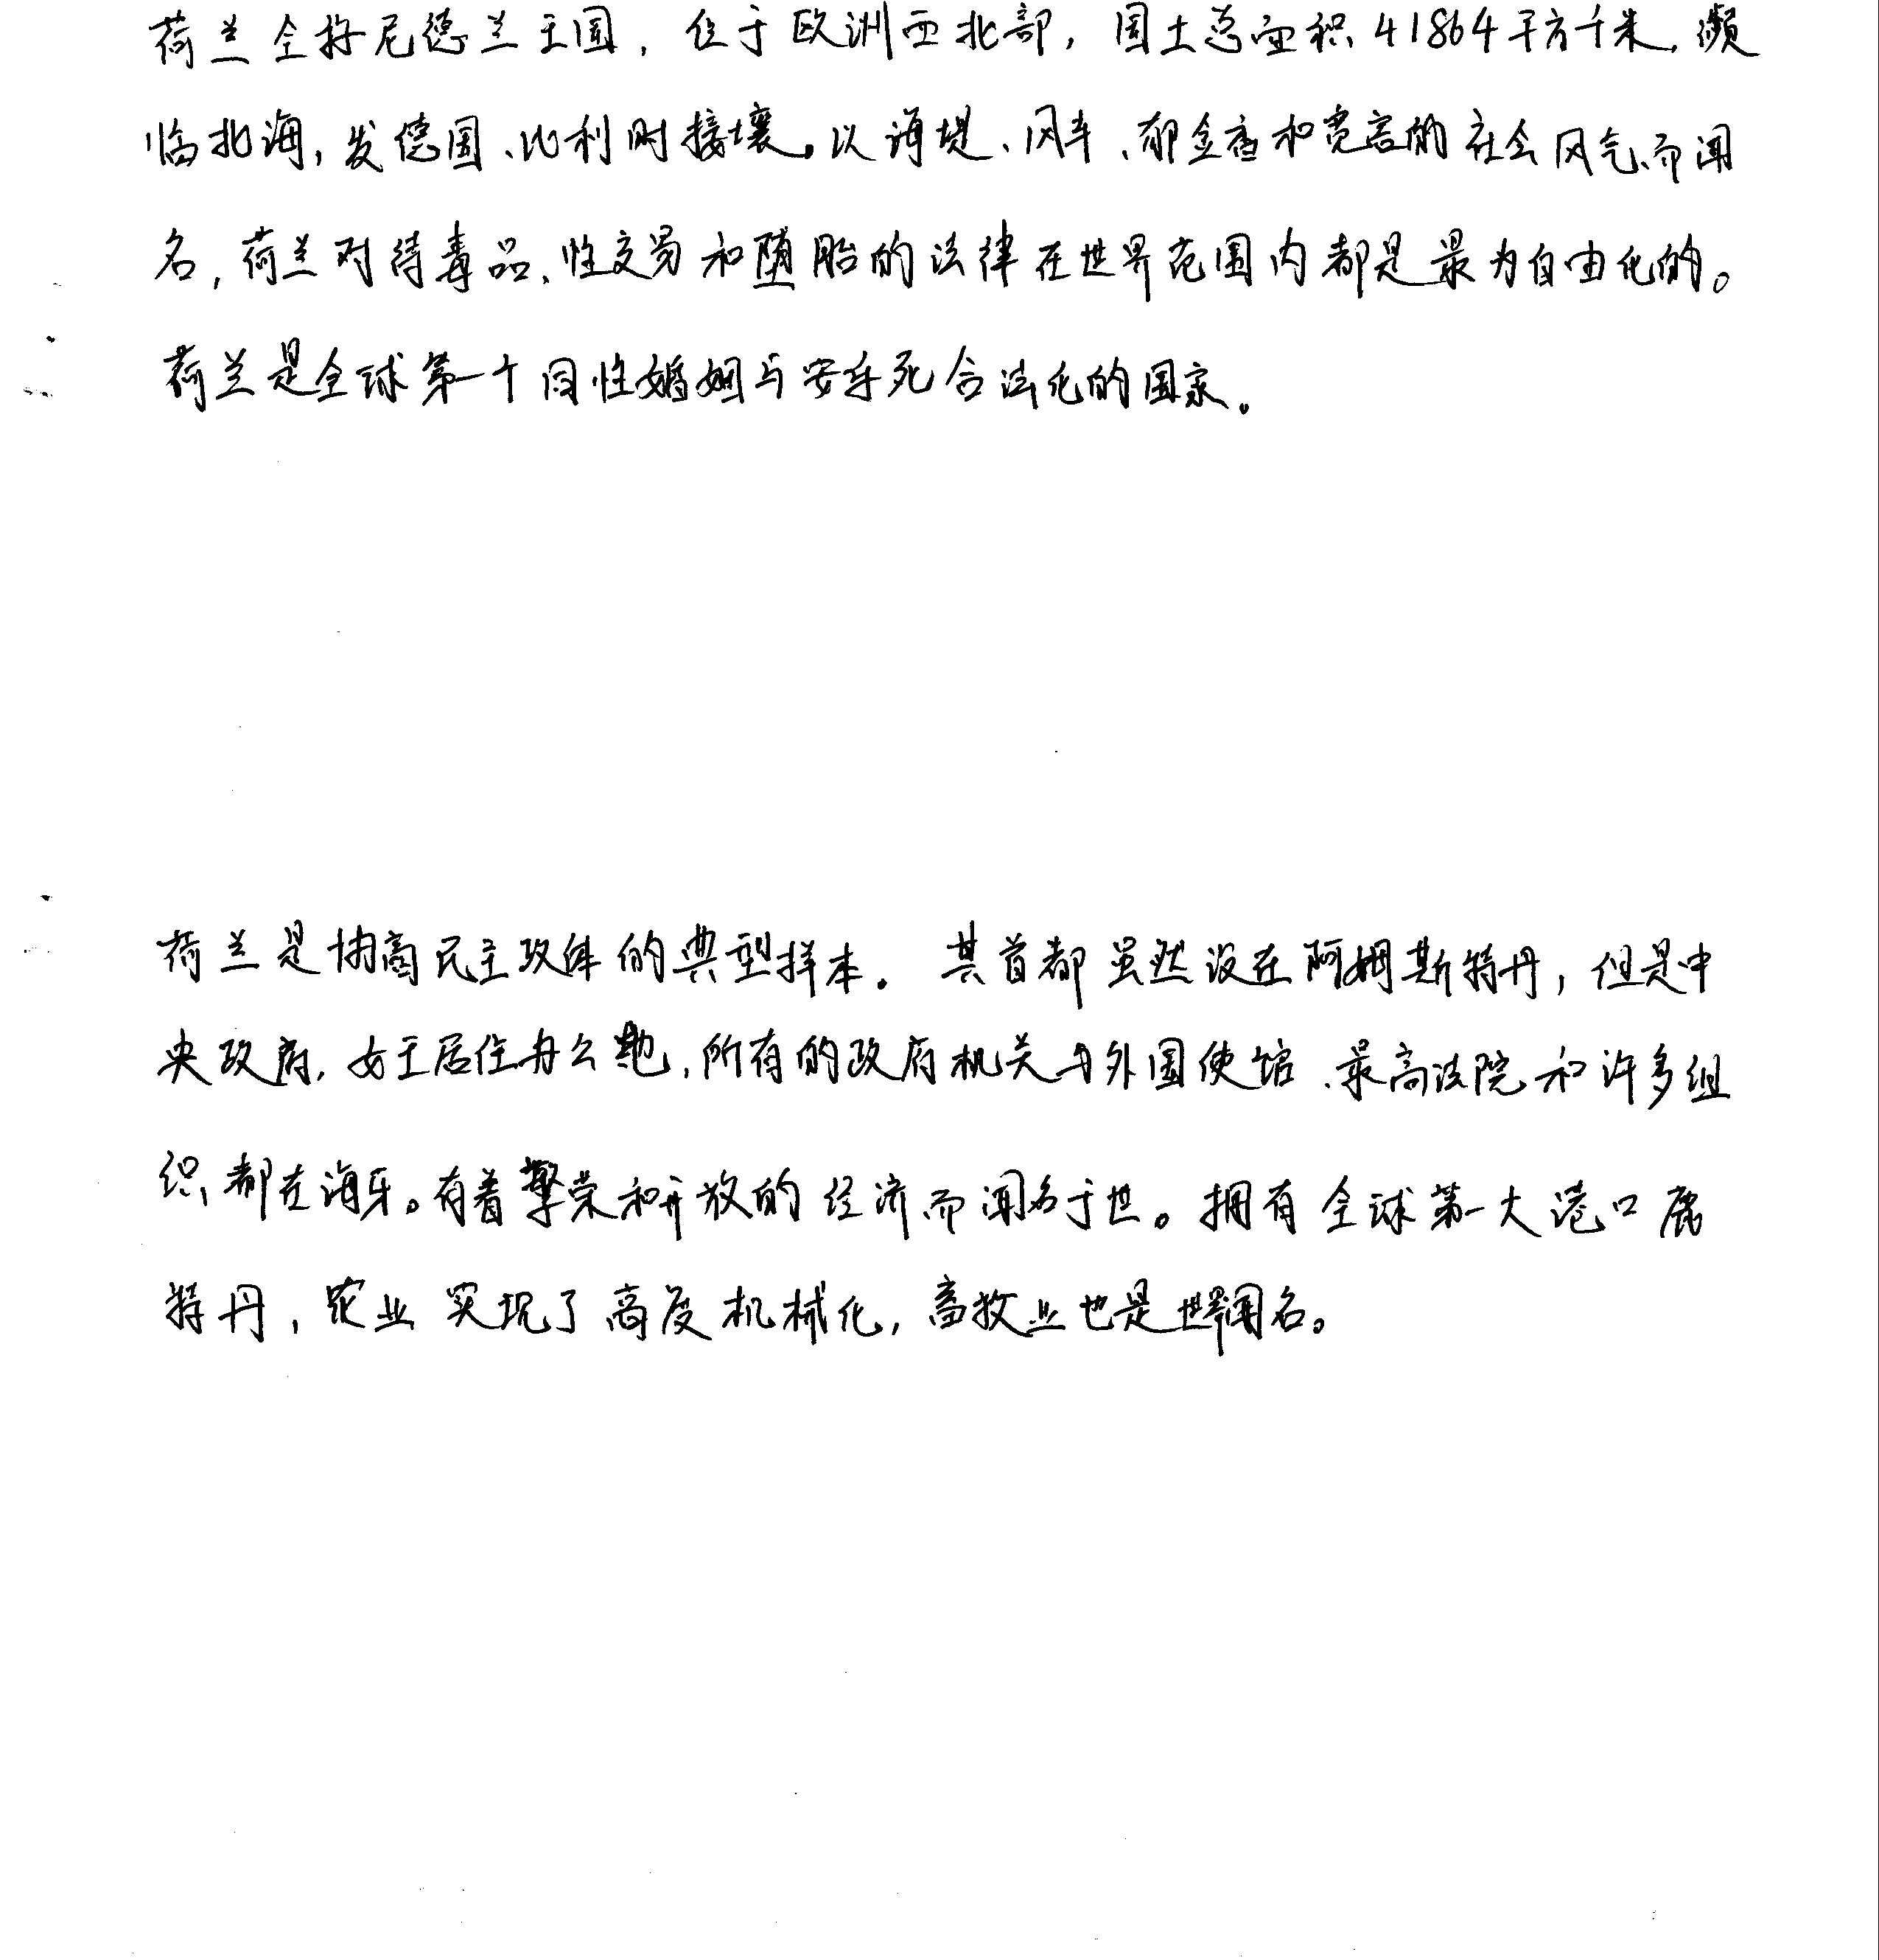 荷兰全称尼德兰王国，位于欧洲西北部，国土总面积41864平方千米，濒
临北海，发德国、比利时接壤。以海堤、风车、郁金香和宽容的社会风气而闻
名，荷兰对待毒品、性交易和堕胎的法律在世界范围内都是最为自由化的。
荷兰是全球第一个同性婚姻与安乐死合法化的国家。
荷兰是协商民主政体的典型样本。其首都虽然设在阿姆斯特丹，但是中
央政府，女王居住办公地，所有的政府机关与外国使馆、最高法院和许多组
织都在海牙。有着繁荣和开放的经济而闻名于世。拥有全球第一大港口鹿
特丹，农业实现了高度机械化，畜牧业也是世界闻名。